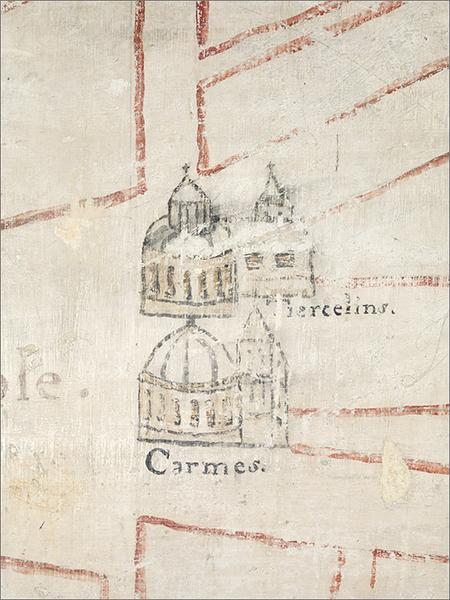 Tiercelins.
ole.
Carmes.